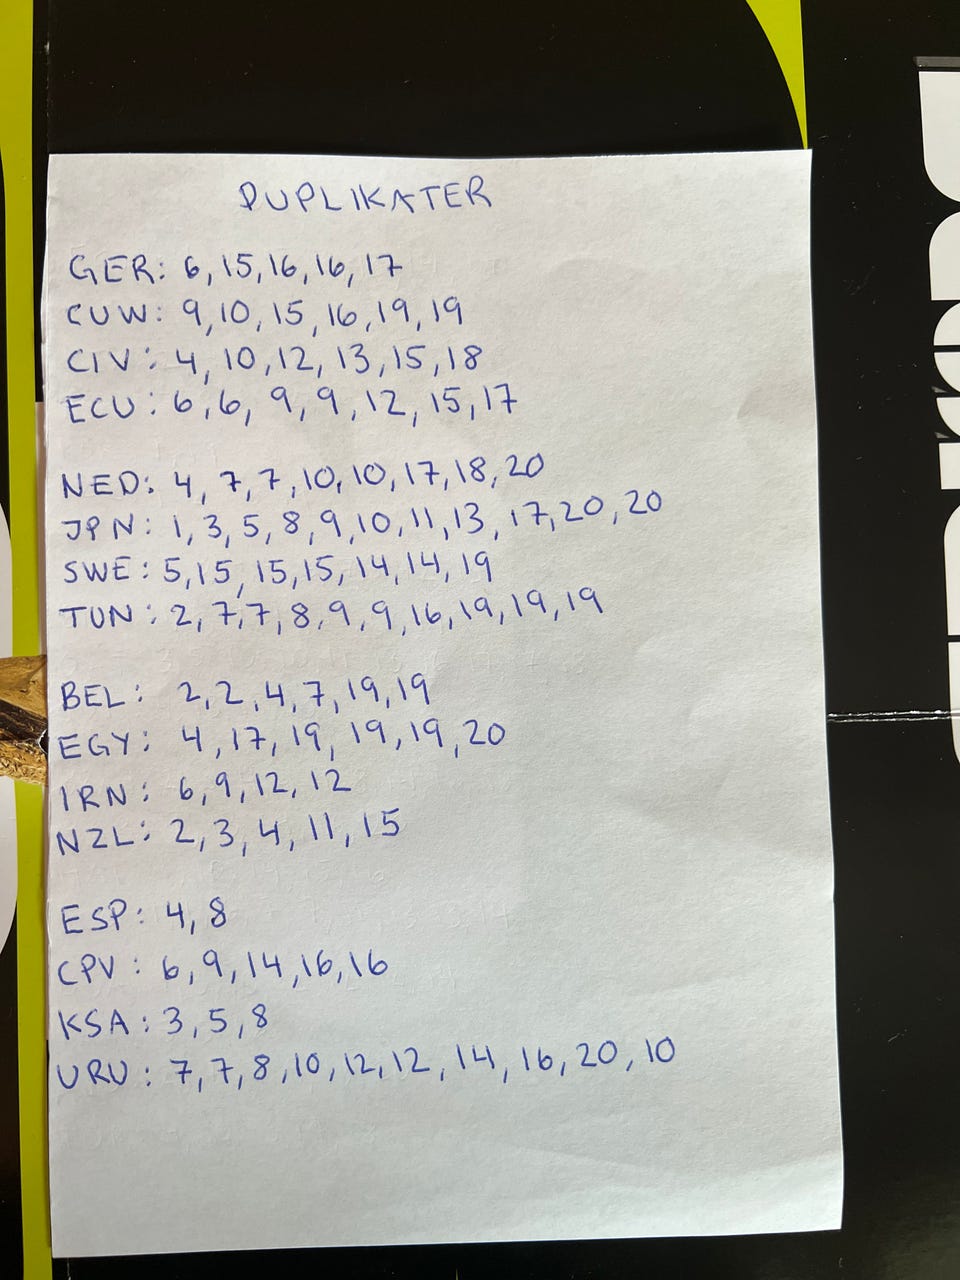 DUPLIKATER
GER: 6, 15, 16, 16, 17
CUW: 9, 10, 15, 16, 19, 19
CIV: 4, 10, 12, 13, 15, 18
ECU: 6, 6, 9, 9, 12, 15, 17
NED: 4, 7, 7, 10, 10, 17, 18, 20
JPN: 1, 3, 5, 8, 9, 10, 11, 13, 17, 20, 20
SWE: 5, 15, 15, 15, 14, 14, 19
TUN: 2, 7, 7, 8, 9, 9, 16, 19, 19, 19
BEL: 2, 2, 4, 7, 19, 19
EGY: 4, 17, 19, 19, 19, 20
IRN: 6, 9, 12, 12
NZL: 2, 3, 4, 11, 15
ESP: 4, 8
CPV: 6, 9, 14, 16, 16
KSA: 3, 5, 8
URU: 7, 7, 8, 10, 12, 12, 14, 16, 20, 10